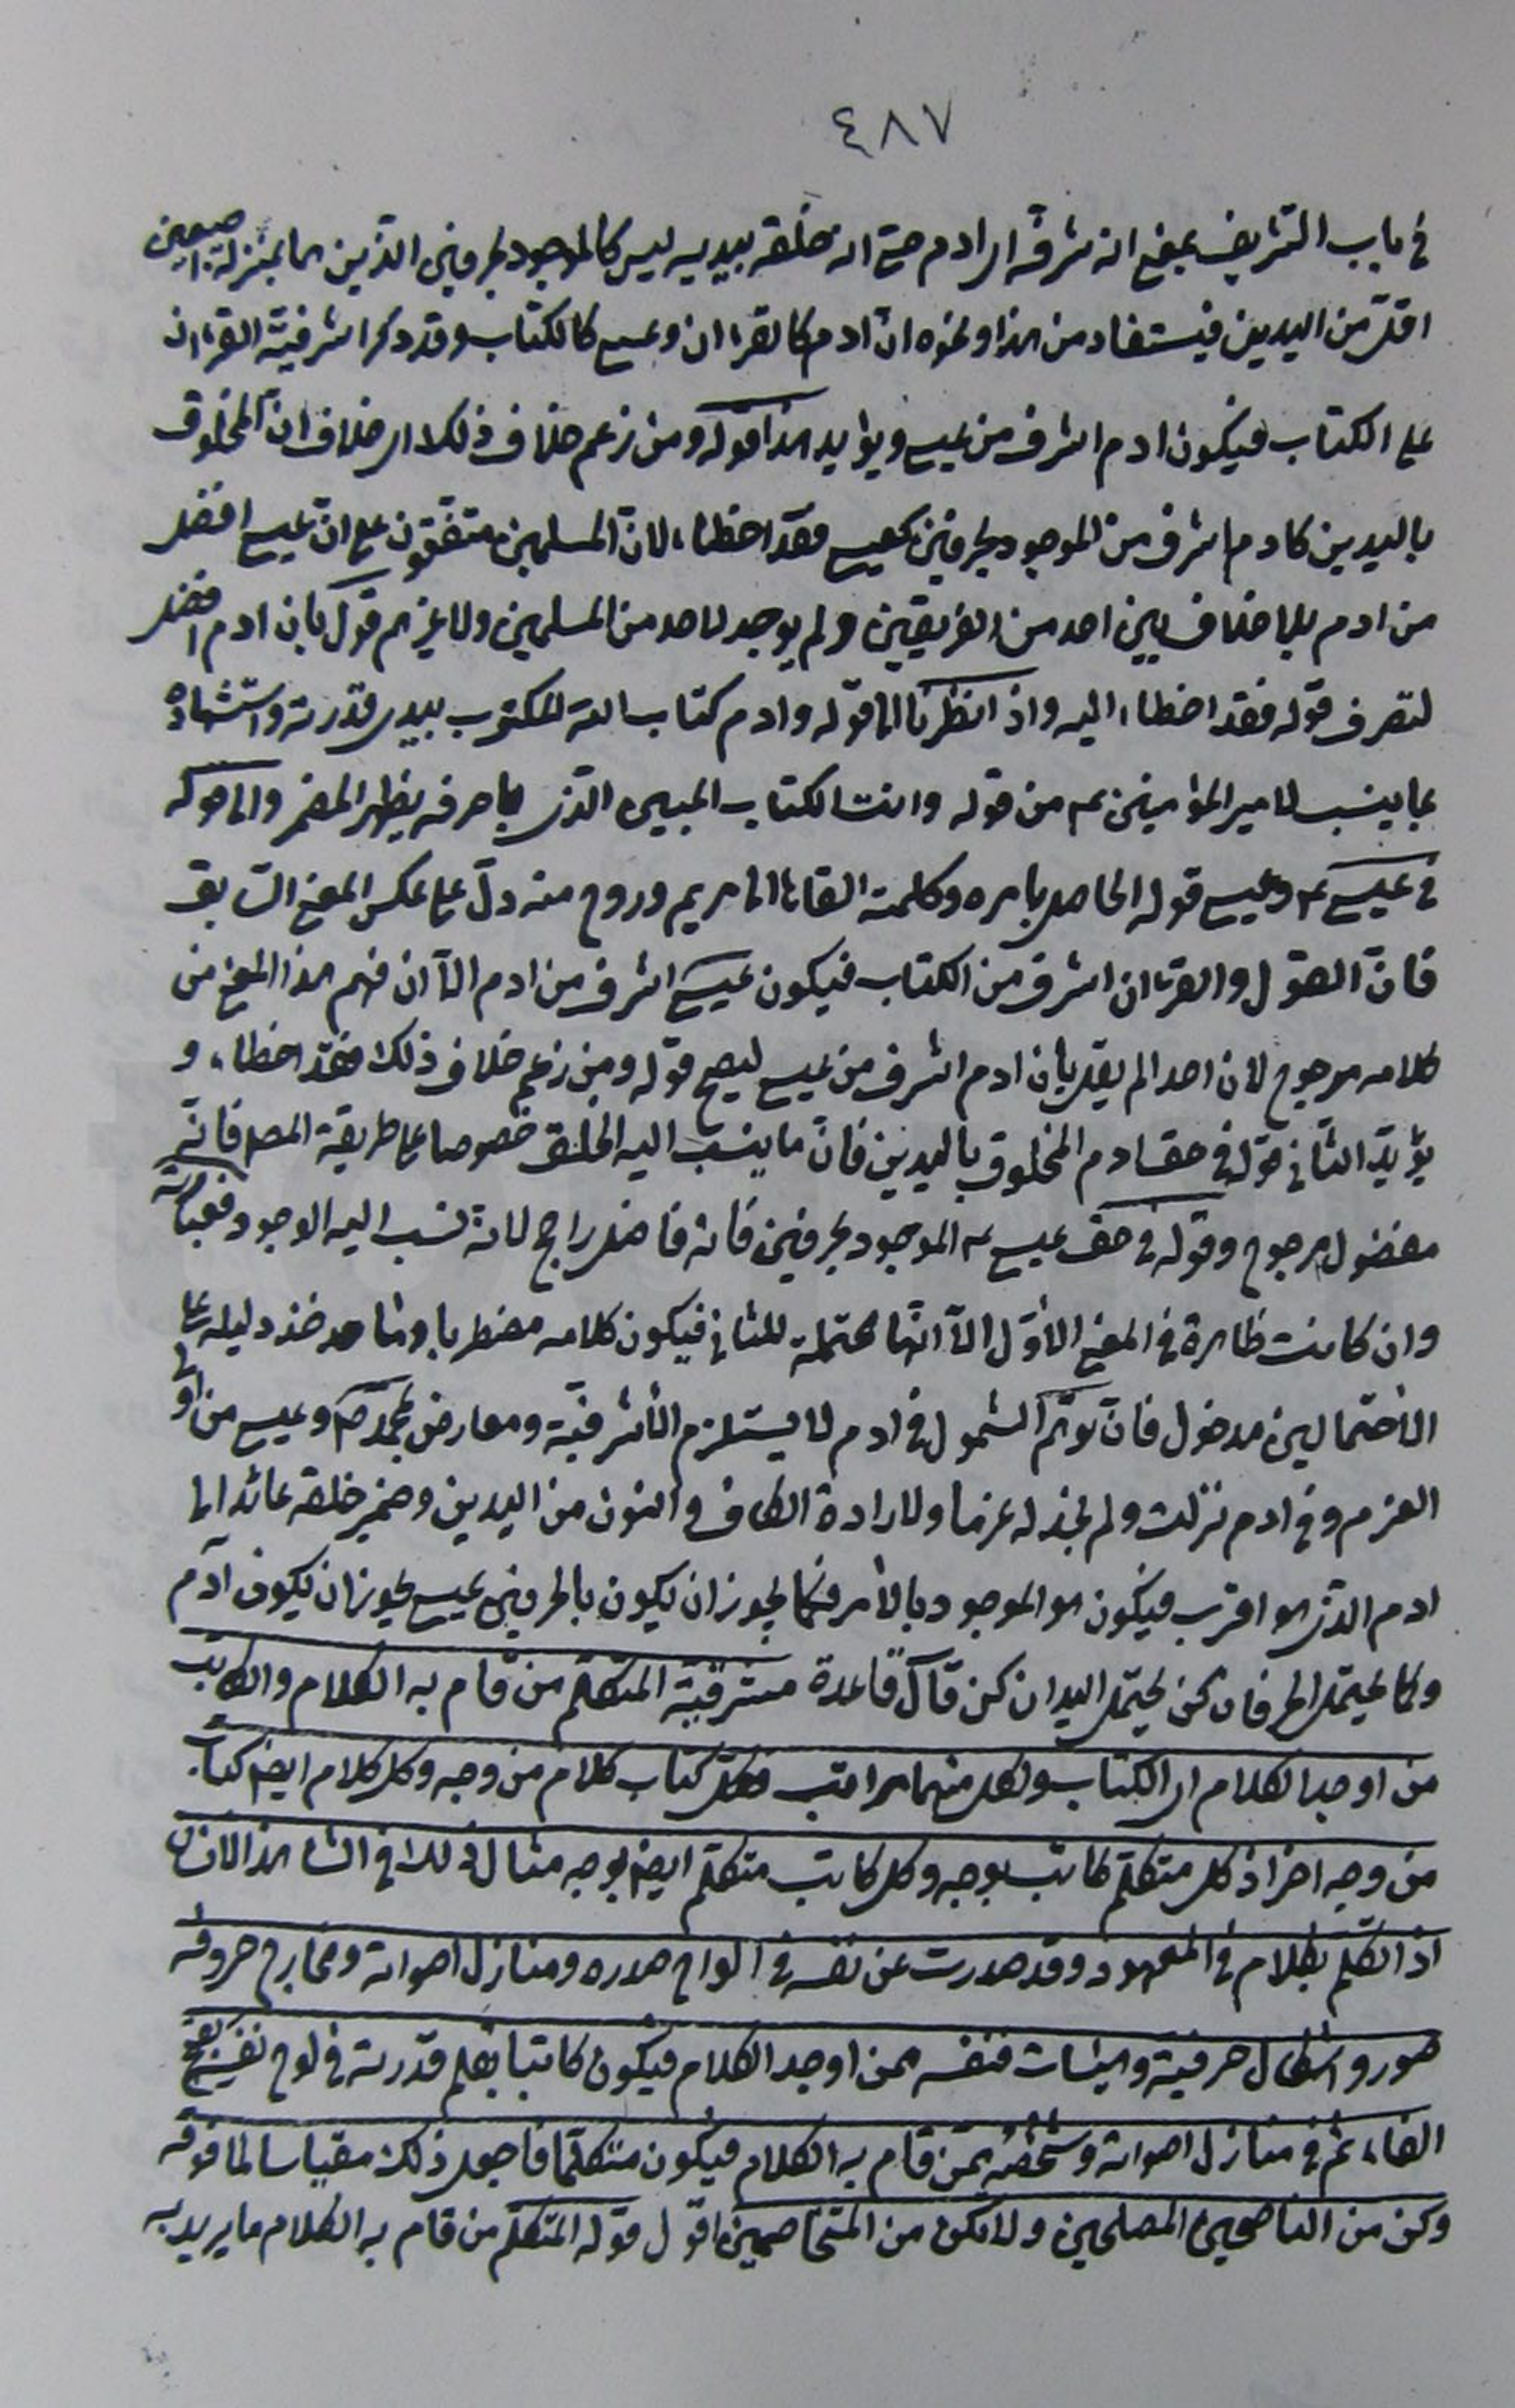 ٤٨٧
في باب التشريف بمعنى انه شرفه اى ادم حتى انه خلقه بيديه ليس كالموجود بحرفين الذين هما بمنزلة اصبعين
اقل من اليدين فيستفاد من هذا ونحوه ان ادم كالقرءان وعيسى كالكتاب وقد ذكر اشرفية القرءان
على الكتاب فيكون ادم اشرف من عيسى ويؤايد هذا قوله ومن زعم خلاف ذلك اى خلاف ان المخلوق
باليدين كادم اشرف من الموجود بحرفين كعيسى فقد اخطاء لان المسلمين متفقون على ان عيسى افضل
من ادم بلا خلاف بين احد من الفريقين ولم يوجد لاحد من المسلمين ولا غيرهم قول بان ادم افضل
لتصرف قوله فقد اخطاء اليه واذا نظرنا الى قوله وادم كتاب الله المكتوب بيدى قدرته واستشهاده
بما ينسب لامير المؤمنين عم من قوله وانت الكتاب المبين الذى باحرفه يظهر المضمر والى قوله
في عيسى عم وعيسى قوله الحاصل بامره وكلمته القاها الى مريم وروح منه دل على عكس المعنى السابق
فان القول والقرءان اشرف من الكتاب فيكون عيسى اشرف من ادم الا ان فهم هذا المعنى من
كلامه مرجوح لان احدا لم يقل بان ادم اشرف من عيسى ليصح قوله ومن زعم خلاف ذلك فقد اخطاء و
يؤيد الثاني قوله في حق ادم المخلوق باليدين فان ما ينسب اليه الخلق خصوصا على طريقة المصـ فانه
مفضول مرجوح وقوله في حق عيسى عم الموجود بحرفين فانه فاضل راجح لانه نسب اليه الوجود فعبارته
وان كانت ظاهرة في المعنى الاول الا انها محتملة للثاني فيكون كلامه مضطربا وشاهد دليله على
الاحتمالين مدخول فان توهم الشمول في ادم لا يستلزم الاشرفية ومعارض بمحمد ص وعيسى من اولى
العزم وفي ادم نزلت ولم نجد له عزما ولارادة الكاف والنون من اليدين وضمير خلقه عائد الى
ادم الذى هو اقرب فيكون هو الموجود بالامر فكما يجوز ان يكون بالحرفين عيسى يجوز ان يكون ادم
وكما يحتمل الحرفان كن يحتمل اليدان كن قال قاعدة مشرقية المتكلم من قام به الكلام والكاتب
من اوجد الكلام اى الكتاب ولكل منهما مراتب فكل كتاب كلام من وجه وكل كلام ايضا كتاب
من وجه اخر اذ كل متكلم كاتب بوجه وكل كاتب متكلم ايضا بوجه مثال ذلك في الشاهد الانسان
اذا تكلم بكلام في المعهود وقد صدرت عن نفسه في الواح صدره ومنازل اصواته ومخارج حروفه
صور واشكال حرفية وهيئات فنفسه ممن اوجد الكلام فيكون كاتبا بقلم قدرته في لوح نفسه بفتح
الفاء ثم في منازل اصواته وشخصه ممن قام به الكلام فيكون متكلما فاجعل ذلك مقياسا لما فوقه
وكن من الناصحين المصلحين ولا تكن من المتخاصمين اقول قوله المتكلم من قام به الكلام ما يريد به